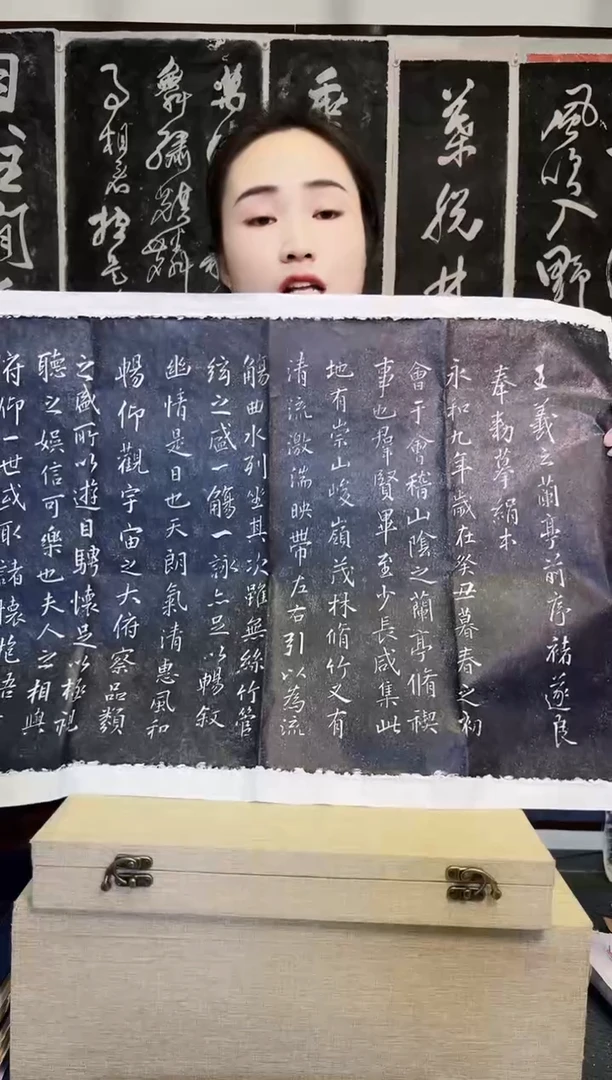 王羲之蘭亭前序褚遂良
奉勅摹絹本
永和九年歲在癸丑暮春之初
會于會稽山陰之蘭亭脩禊
事也羣賢畢至少長咸集此
地有崇山峻嶺茂林脩竹又有
清流激湍映帶左右引以為流
觴曲水列坐其次雖無絲竹管
弦之盛一觴一詠亦足以暢敘
幽情是日也天朗氣清惠風和
暢仰觀宇宙之大俯察品類
之盛所以遊目騁懷足以極視
聽之娛信可樂也夫人之相與
俯仰一世或取諸懷抱悟
風吹入野
葉脫